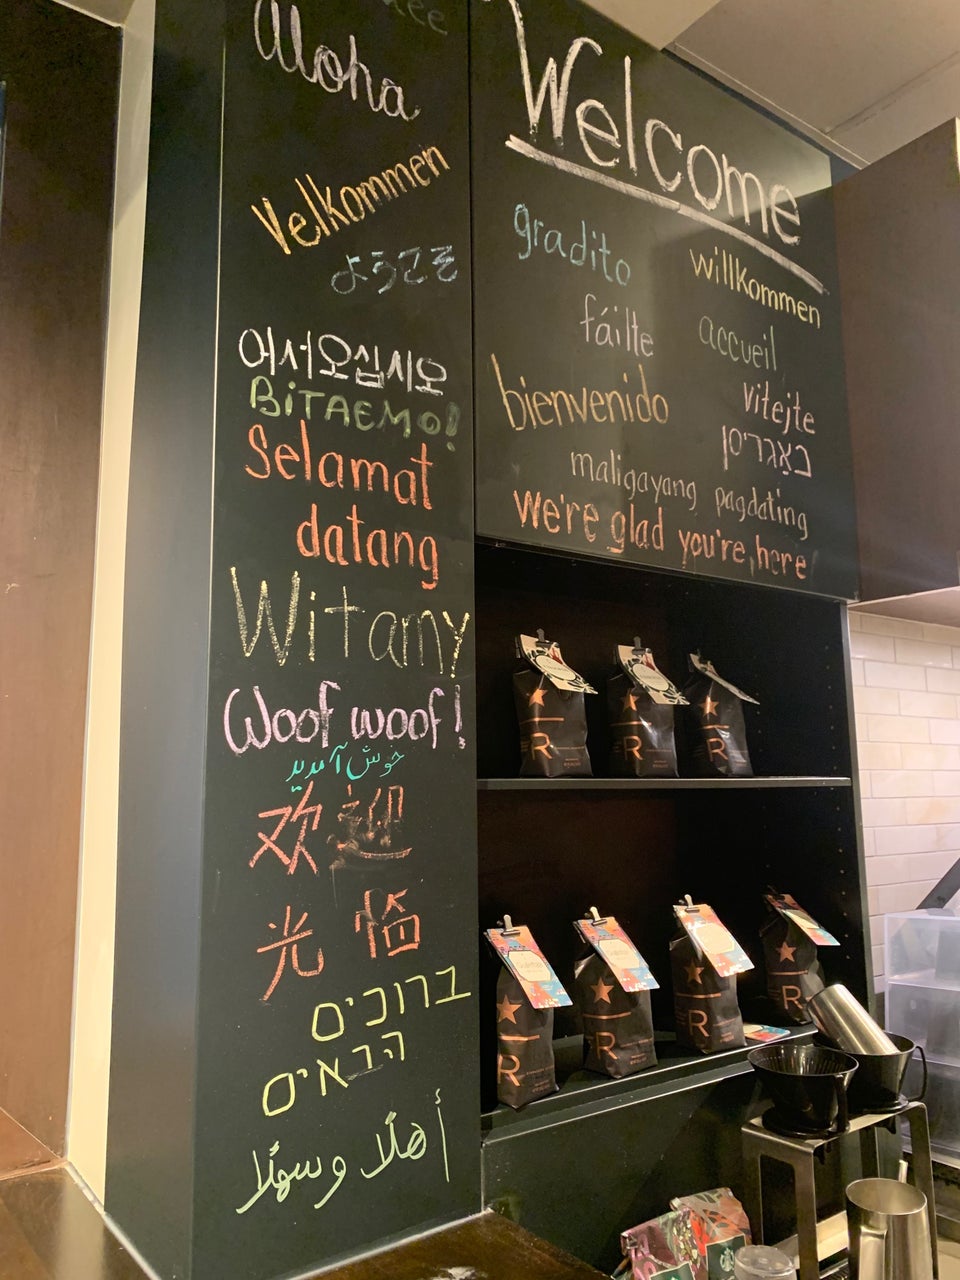 Aloha
Velkommen
ようこそ
어서오십시오
ВіТАЄМО!
Selamat
datang
Witamy
Woof woof!
خوش آمدید
欢迎
光临
ברוכים
הבאים
أهلًا وسهلًا
Welcome
gradito
willkommen
fáilte
accueil
bienvenido
vitejte
באַגריסן
maligayang pagdating
we're glad you're here
R
R
R
R
R
R
R